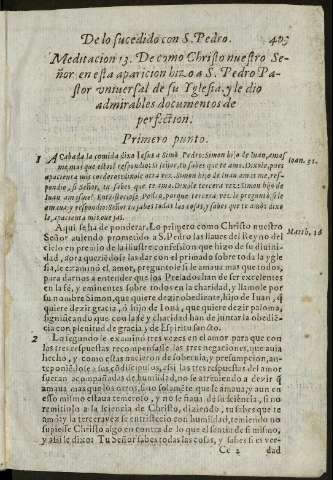 De lo sucedido con S. Pedro. 403
Meditacion 13. De como Christo nuestro Se-
ñor en esta aparicion hizo a S. Pedro Pa-
stor vniuersal de su Yglesia, y le dio
admirables documentos de
perfection.
Primero punto.
1 ACabada la comida dixo Iesus a Simō Pedro: Simon hijo de Iuan, amas
me mas que estos? respondio: Si señor, tu sabes que te amo. Dixole, pues
apacienta mis corderos: dixole otra vez. Simon hijo de Iuan amas me, res-
pondio, si Señor, tu sabes que te amo. Dixole tercera vez: Simon hijo de
Iuan amasme? Entristeciose Pedro, porque tercera vez le preguntò, si le
amaua y respondio: Señor tu sabes todas las cosas, y sabes que te amo: dixo
le, apacienta mis ouejas.
Ioan. 21.
Aqui se ha de ponderar. Lo primero como Christo nuestro
Señor auiendo prometido a S. Pedro las llaues del Reyno del
cielo en premio de la illustre confession que hizo de su diuini-
dad, aora queriendo se las dar con el primado sobre toda la ygle
sia, le examinò el amor, preguntole si le amaua mas que todos,
para darnos a entender que los Prelados han de ser excelentes
en la fè, y eminentes sobre todos en la charidad, y llamole por
su nombre Simon, que quiere dezir obediente, hijo de Iuan, q̃
quiere dezir gracia, ò hijo de Iona, que quiere dezir paloma,
significando que con la fè y charidad han de juntar la obediē-
cia con plenitud de gracia y de Espiritu sancto.
Matth. 16
2 Lo segundo le examinò tres vezes en el amor para que con
las tres respuestas recompensasse las tres negaciones, que auia
hecho, y como estas nacieron de soberuia, y presumpcion, an-
teponiendose a sus cõdiscipulos, assi las tres respuestas del amor
fueran acompañadas de humildad, no se atreuiendo a dezir q̃
amaua mas que los otros, sino solamēte que le amaua, y aun en
esso mismo estaua temeroso, y no se fiaua de su sciencia, si no
remitiolo a la sciencia de Christo, diziendo, tu sabes que te
amo: y la tercera vez se entristecio con humildad, temiendo no
supiesse Christo algo en contra de lo que el sentia de si mismo,
y assi le dixo: Tu Señor sabes todas las cosas, y sabes si es ver-
Cc 2 dad